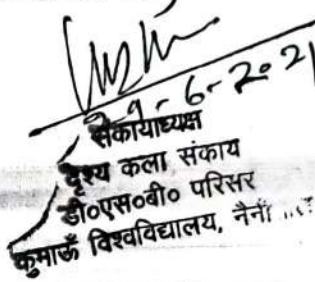 29-6-2021
संकायाध्यक्ष
दृश्य कला संकाय
डी०एस०बी० परिसर
कुमाऊँ विश्वविद्यालय,